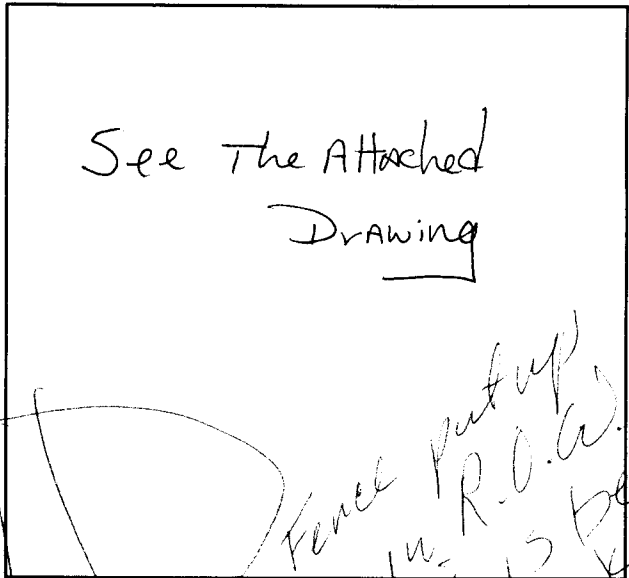 See The Attached
Drawing
Fence put up
in R.O.W.
is be